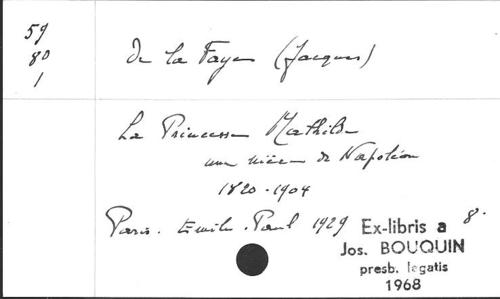 59
80
1
De la Faye (Jacques)
La Princesse Mathilde
une nièce de Napoléon
1820-1904
Paris. Emile.Paul 1929 8°
Ex-libris a
Jos. BOUQUIN
presb. legatis
1968